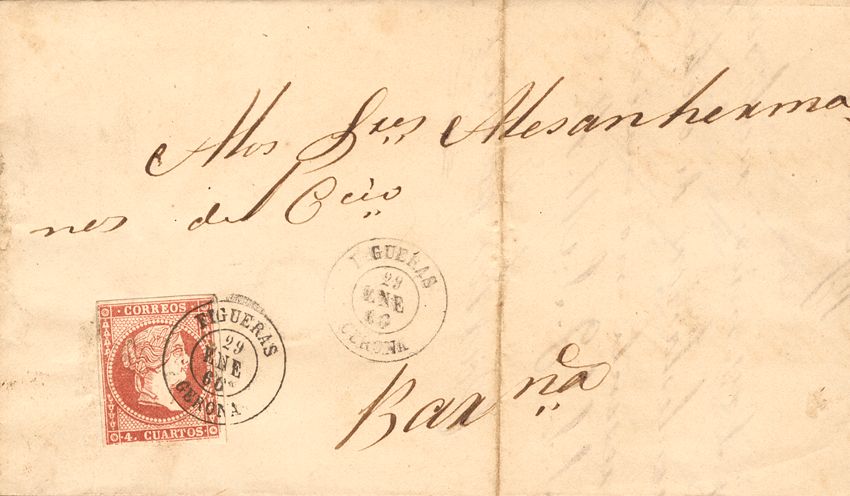 Alos Sres Alesan herma
nos del Ccio
FIGUERAS
29
ENE
60
GERONA
CORREOS
4. CUARTOS
FIGUERAS
29
ENE
60
GERONA
Barna